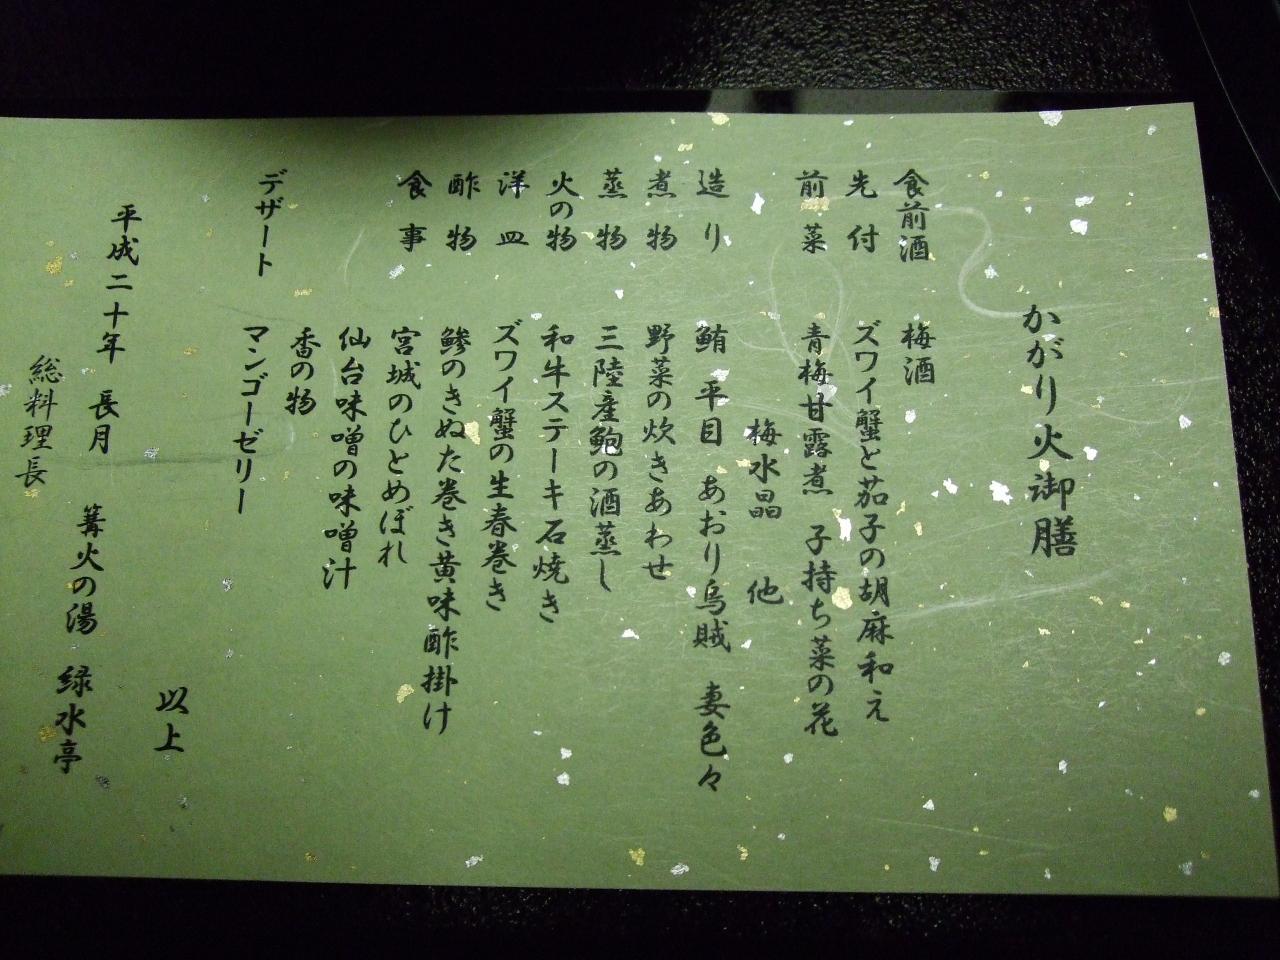 かがり火御膳
食前酒 梅酒
先付 ズワイ蟹と茄子の胡麻和え
前菜 青梅甘露煮 子持ち菜の花
梅水晶 他
造り 鮪 平目 あおり烏賊 妻色々
煮物 野菜の炊きあわせ
蒸物 三陸産鮑の酒蒸し
火の物 和牛ステーキ石焼き
洋皿 ズワイ蟹の生春巻き
酢物 鯵のきぬた巻き黄味酢掛け
食事 宮城のひとめぼれ
仙台味噌の味噌汁
香の物
デザート マンゴーゼリー
以上
平成二十年 長月
篝火の湯 緑水亭
総料理長